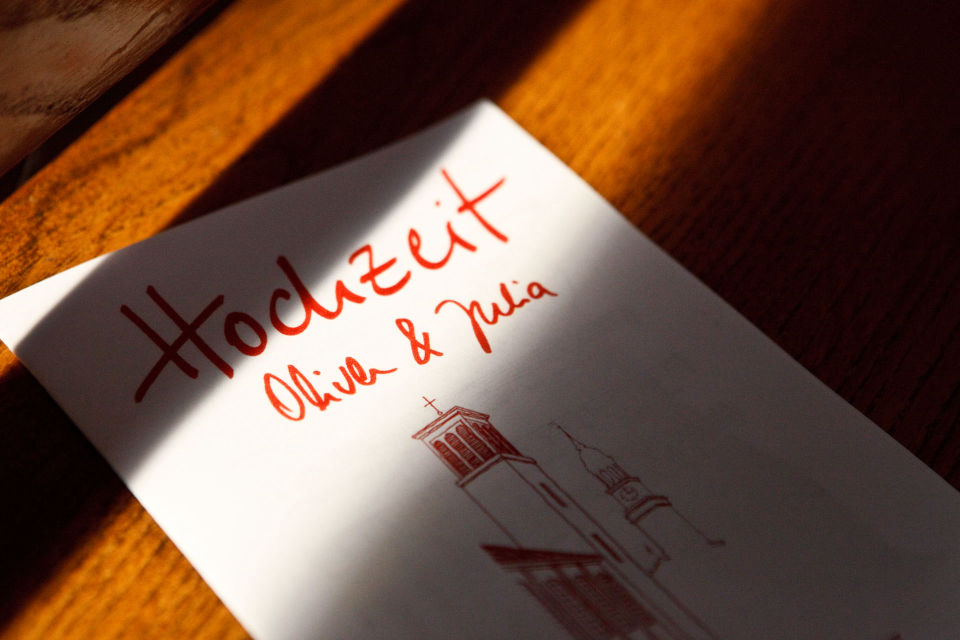 Hochzeit
Oliver & Julia